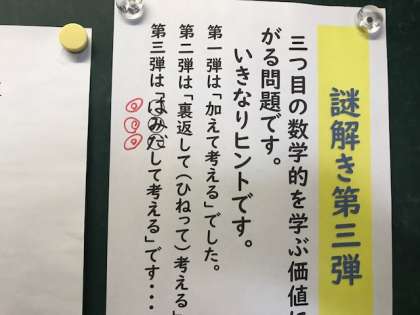 謎解き第三弾
三つ目の数学的を学ぶ価値に
がる問題です。
いきなりヒントです。
第一弾は「加えて考える」でした。
第二弾は「裏返して(ひねって)考える」
第三弾は「はみだして考える」です・・・